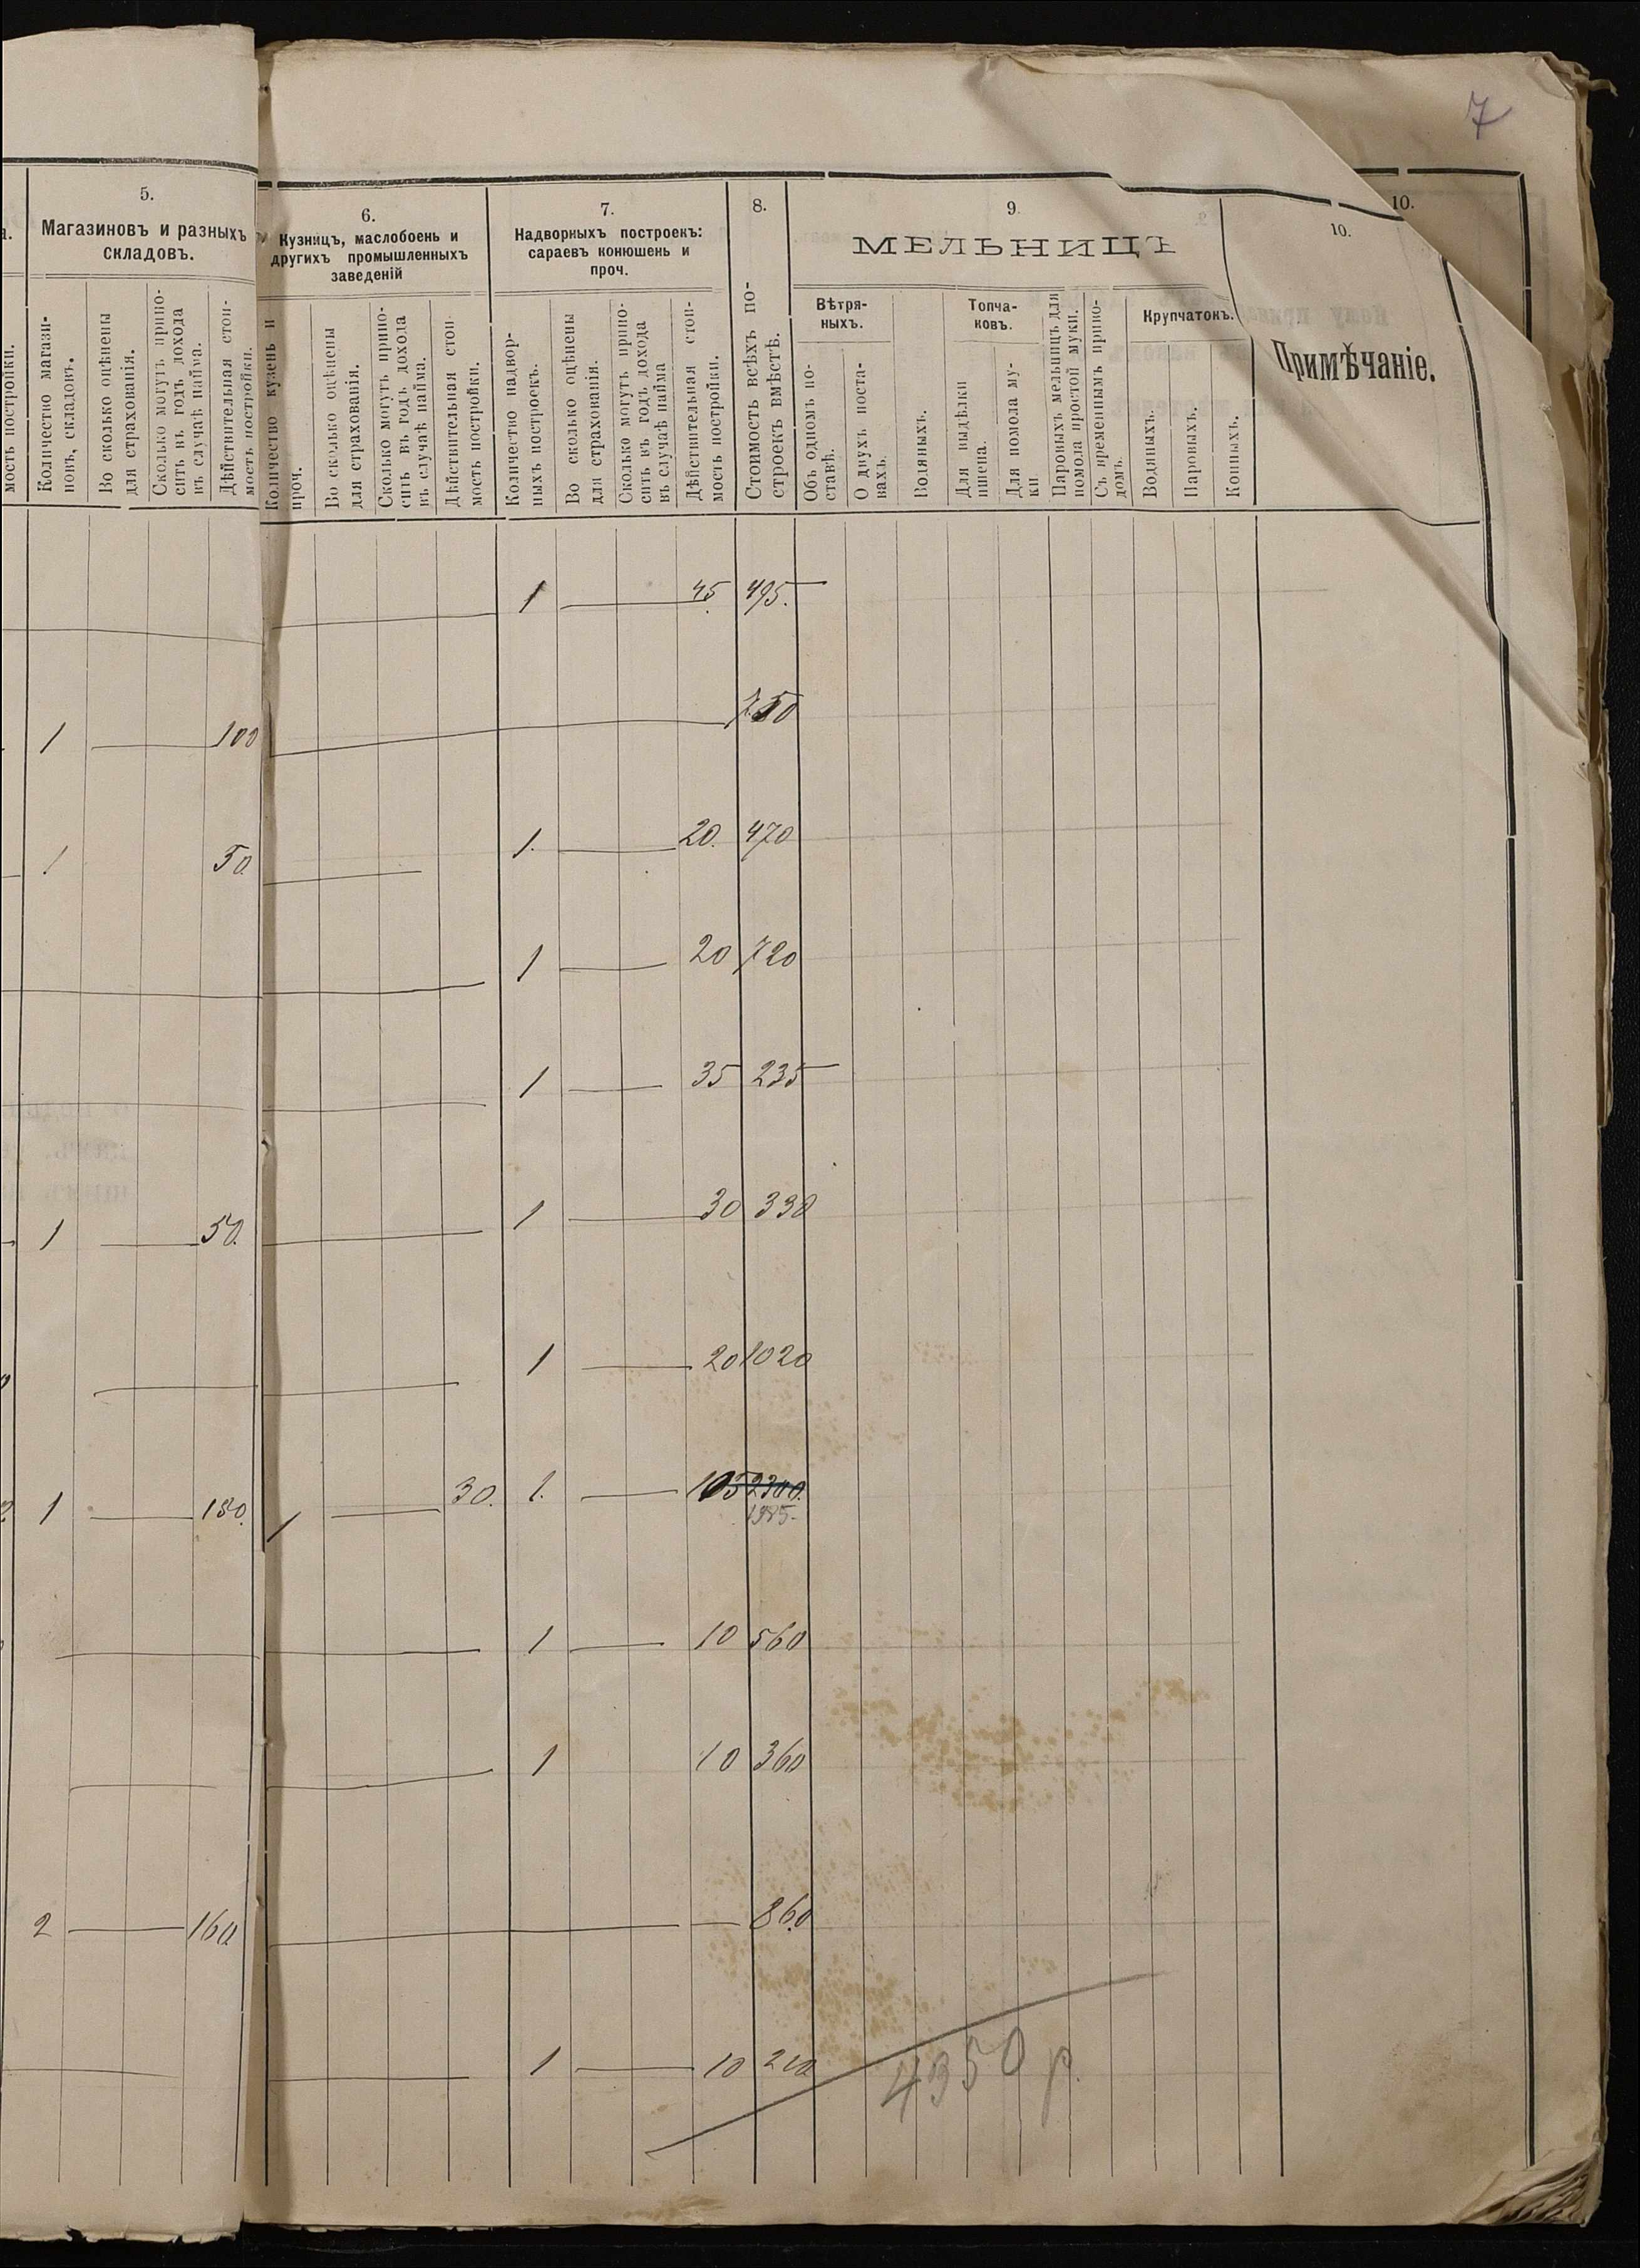 7
5.
Магазиновъ и разныхъ
складовъ.
мость постройки.
Количество магази-
новъ, складовъ.
Во сколько оцѣнены
для страхованія.
Сколько могутъ прино-
сить въ годъ дохода
въ случаѣ найма.
Дѣйствительная стои-
мость постройки.
6.
Кузницъ, маслобоень и
другихъ промышленныхъ
заведеній
Количество кузень и
проч.
Во сколько оцѣнены
для страхованія.
Сколько могутъ прино-
сить въ годъ дохода
въ случаѣ найма.
Дѣйствительная стои-
мость постройки.
7.
Надворныхъ построекъ:
сараевъ конюшень и
проч.
Количество надвор-
ныхъ построекъ.
Во сколько оцѣнены
для страхованія.
Сколько могутъ прино-
сить въ годъ дохода
въ случаѣ найма
Дѣйствительная стои-
мость постройки.
8.
Стоимость всѣхъ по-
строекъ вмѣстѣ.
9.
МЕЛЬНИЦЪ
Вѣтря-
ныхъ.
Объ одномъ по-
ставѣ.
О двухъ поста-
вахъ.
Водяныхъ.
Топча-
ковъ.
Для выдѣлки
пшена.
Для помола му-
ки
Паровыхъ мельницъ для
помола простой муки.
Съ временнымъ прино-
домъ.
Крупчатокъ.
Водяныхъ.
Паровыхъ.
Конныхъ.
10.
10.
Примѣчаніе.
1 45 495.
1 100 750
1 50 1. 20. 470
1 20 720
1 35 235
1 50. 1 30 330
1 20 1020
1 180. 1 30. 1. 105 2300.
1385.
1 10 560
1 10 360
2 160 860
1 10 210
4350 р.